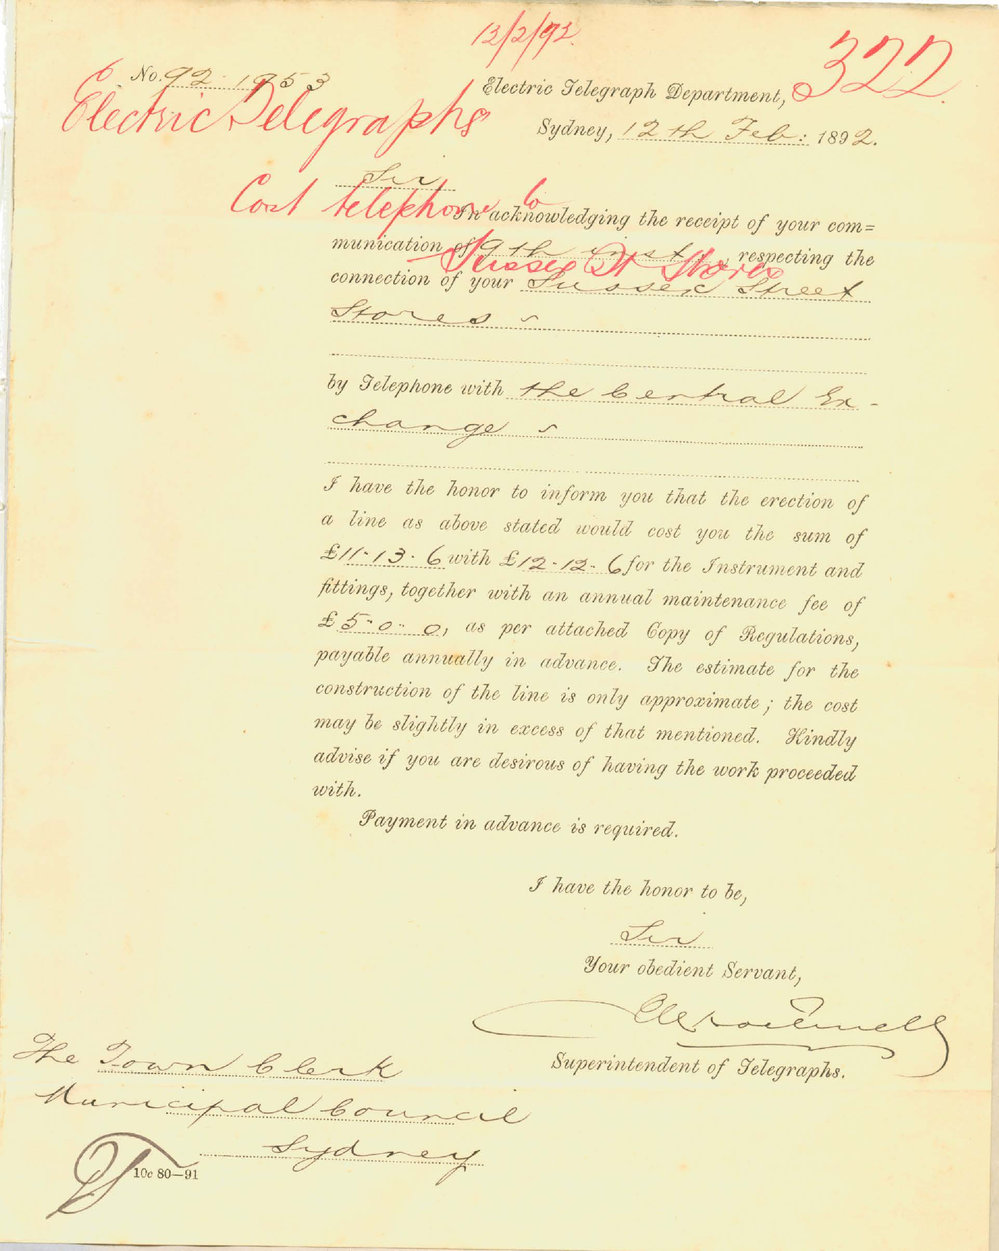 13/2/92.
322.
No. 92.1953
Electric Telegraph Department,
Electric Telegraphs
Sydney, 12th Feb: 1892.
Sir
Cost telephone to
In acknowledging the receipt of your com=
munication of 9th inst, respecting the
Sussex St Stores
connection of your Sussex Street
Stores
by Telephone with the Central Ex-
change
I have the honor to inform you that the erection of
a line as above stated would cost you the sum of
£11-13-6 with £12-12-6 for the Instrument and
fittings, together with an annual maintenance fee of
£5-0-0, as per attached Copy of Regulations,
payable annually in advance. The estimate for the
construction of the line is only approximate; the cost
may be slightly in excess of that mentioned. Kindly
advise if you are desirous of having the work proceeded
with.
Payment in advance is required.
I have the honor to be,
Sir
Your obedient Servant,
Superintendent of Telegraphs.
The Town Clerk
Municipal Council
Sydney
10c 80—91